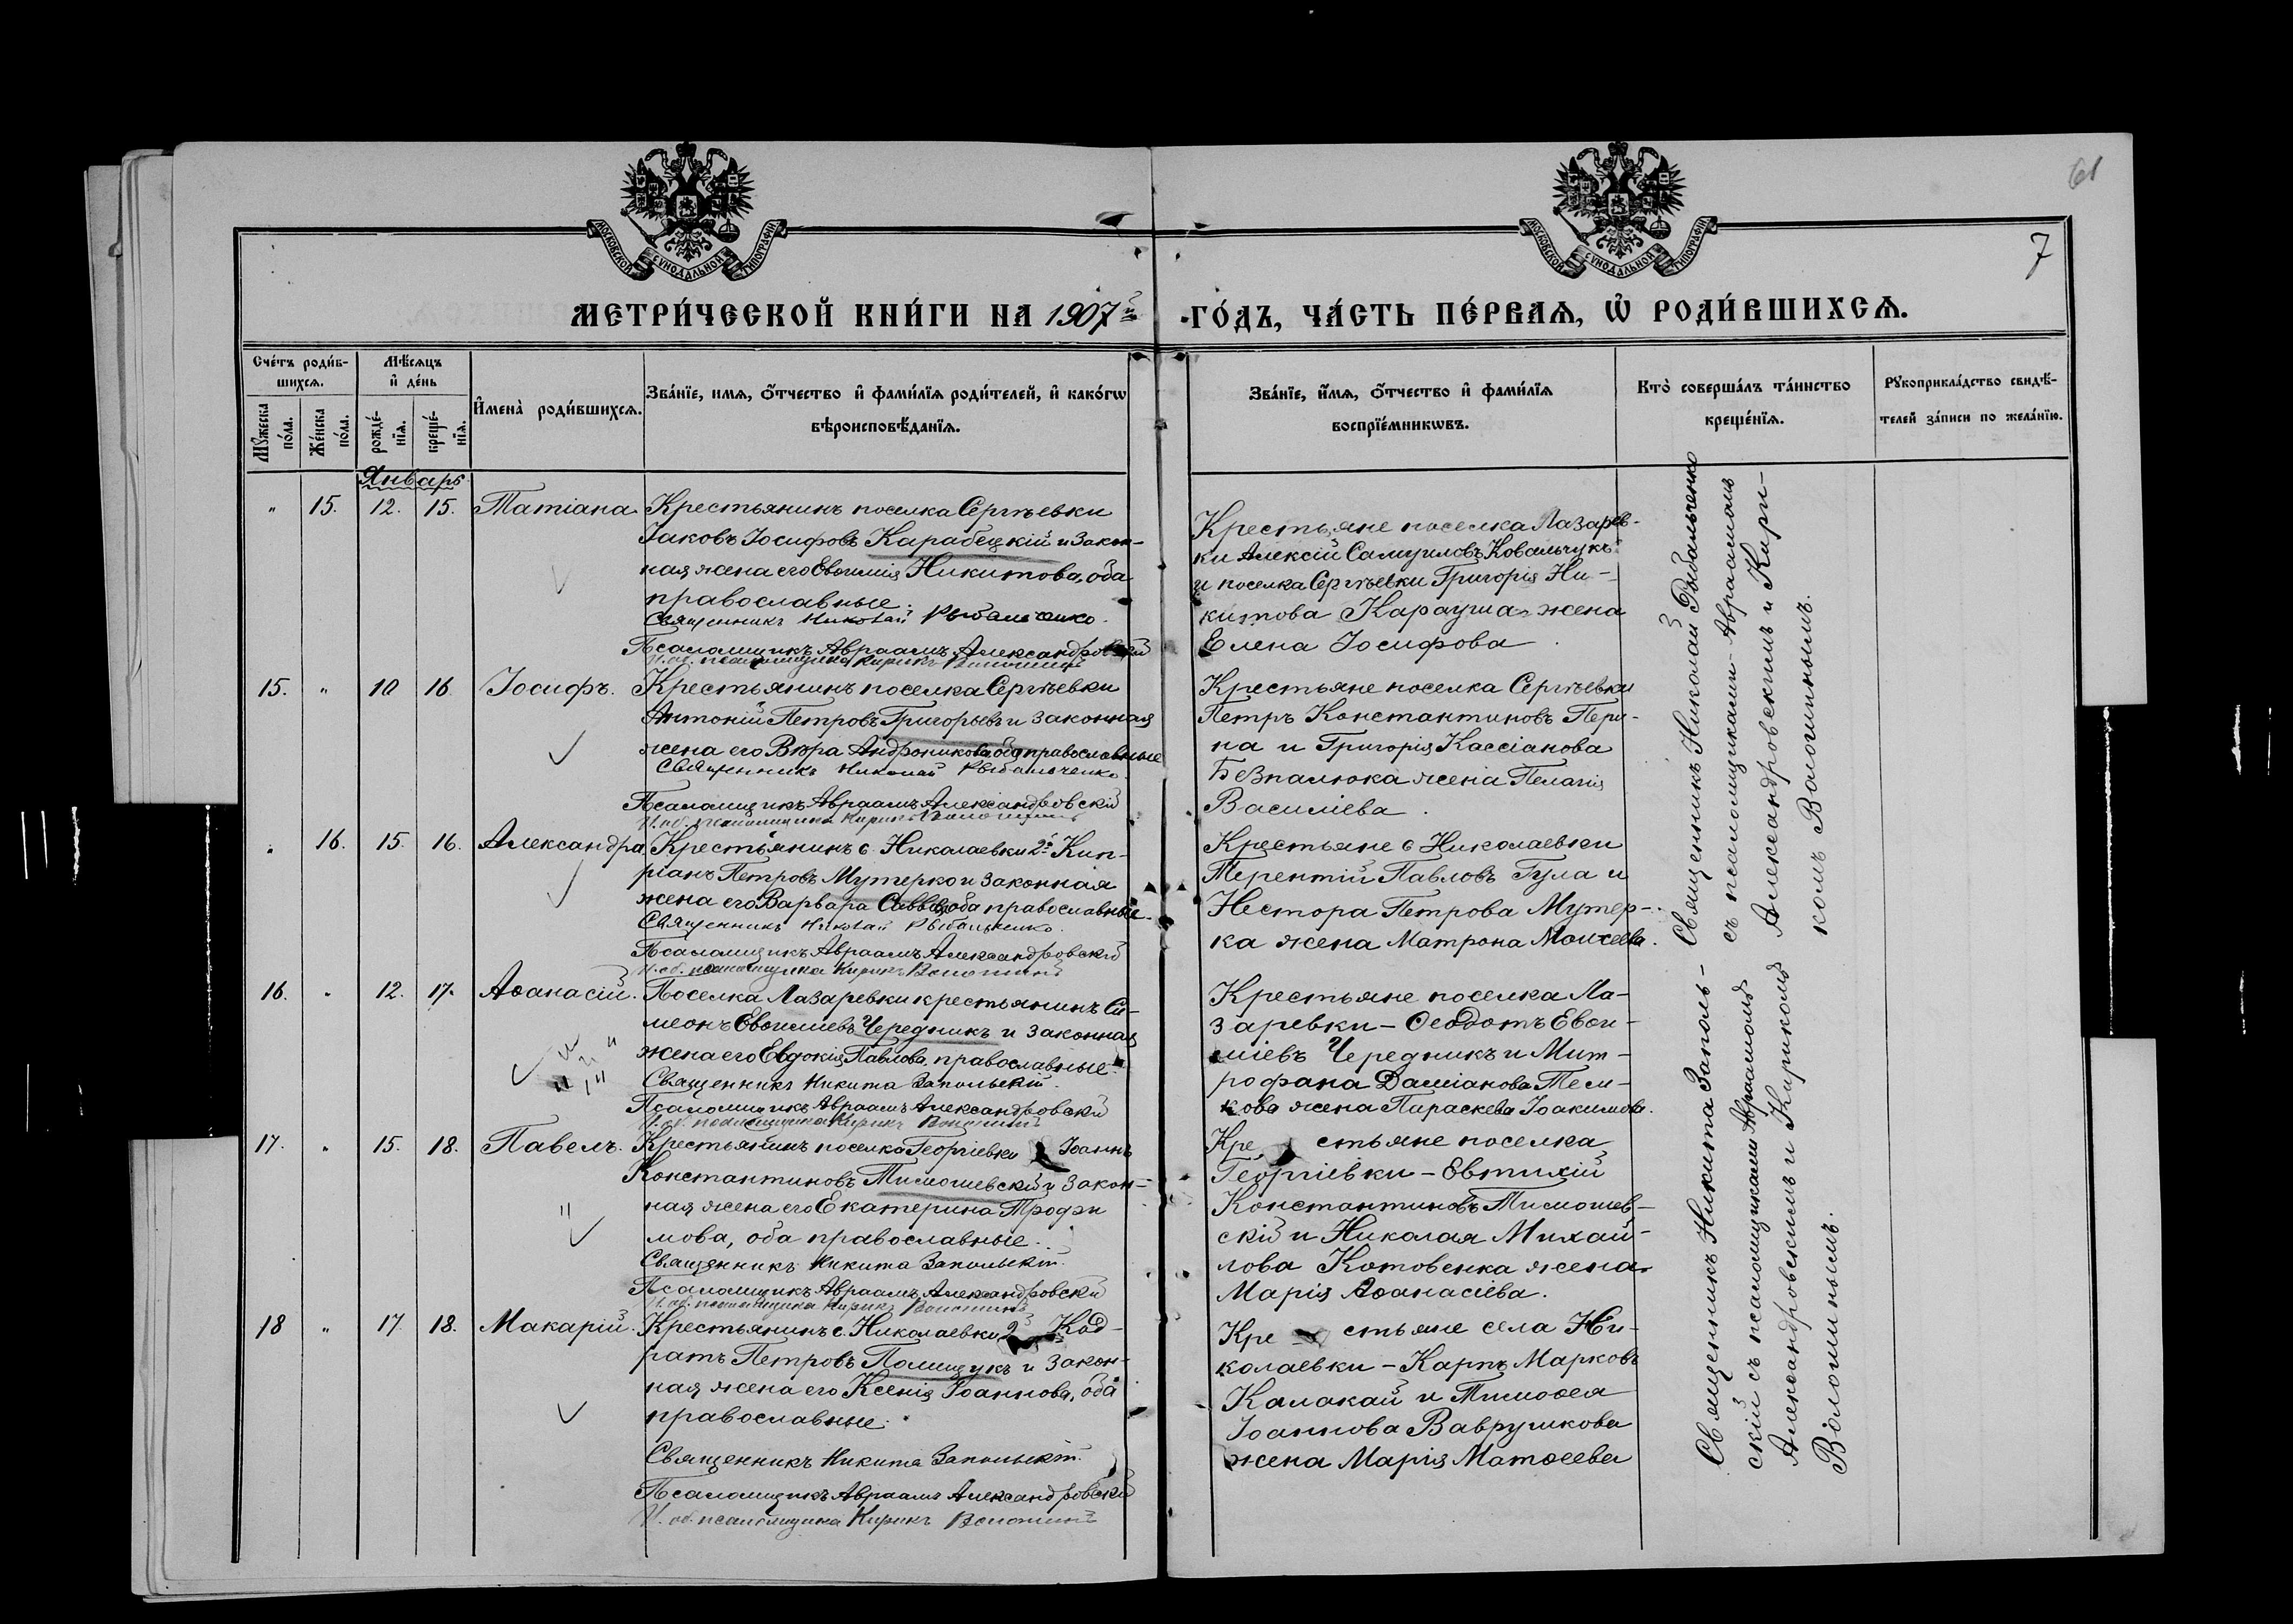 61
7
МОСКОВСКОЙ СѴНОДАЛЬНОЙ ТИПОГРАФІИ
МОСКОВСКОЙ СѴНОДАЛЬНОЙ ТИПОГРАФІИ
МЕТРИ́ЧЕСКОЙ КНИ́ГИ НА 1907й
ГО́ДЪ, ЧА́СТЬ ПЕ́РВАѦ, Ѽ РОДИ́ВШИХСѦ.
Сче́тъ роди́в-
шихсѧ.
Мꙋ́жеска по́ла.
Же́нска по́ла.
Мѣ́сѧцъ
и҆ де́нь
рожде́-
нїѧ.
креще́-
нїѧ.
И҆мена̀ роди́вшихсѧ.
Зва́нїе, имѧ, ѻ҆́тчество и҆ фами́лїѧ роди́телей, и҆ како́гѡ
вѣроисповѣ́данїѧ.
Зва́нїе, и҆́мѧ, ѻ҆́тчество и҆ фами́лїѧ
воспрїе́мникѡвъ.
Кто̀ соверша́лъ та́инство
креще́нїѧ.
Рꙋкоприкла́дство свидѣ́-
телей за́писи по жела́нїю.
Январь
" 15. 12. 15. Татіана
Крестьянинъ поселка Сергѣевки
Іаковъ Іосифовъ Карабецкій и закон-
ная жена его Евѳимія Никитова, оба
православные.
Священникъ Николай Рыбальченко.
Псаломщикъ Авраамъ Александровскій
И. об. псаломщика Кирикъ Волошинъ
Крестьяне поселка Лазарев-
ки Алексій Самуиловъ Ковальчукъ
и поселка Сергѣевки Григорія Ни-
китова Карауша жена
Елена Іосифова
15. " 10 16 Іосифъ.
Крестьянинъ поселка Сергѣевки
Антоній Петровъ Григорьевъ и законная
жена его Вѣра Андроникова оба православные
Священникъ Николай Рыбальченко.
Псаломщикъ Авраамъ Александровскій
И. об. псаломщика Кирикъ Волошинъ
Крестьяне поселка Сергѣевки
Петръ Константиновъ Пери-
на и Григорія Кассіанова
Безпалюка жена Пелагія
Василіева.
" 16. 15. 16. Александра
Крестьянинъ с. Николаевки 2й Кип-
ріанъ Петровъ Мутерко и законная
жена его Варвара Саввова, оба православные.
Священникъ Николай Рыбальченко.
Псаломщикъ Авраамъ Александровскій
И. об. псаломщика Кирикъ Волошинъ
Крестьяне с Николаевки
Терентій Павловъ Гула и
Нестора Петрова Мутер-
ка жена Матрона Моисеева.
16. " 12. 17. Аѳанасій.
Поселка Лазаревки крестьянинъ Си-
меонъ Евѳиміевъ Чередникъ и законная
жена его Евдокія Павлова, православные.
Священникъ Никита Запольскій.
Псаломщикъ Авраамъ Александровскій
И. об. псаломщика Кирикъ Волошинъ
Крестьяне поселка Ла-
заревки - Ѳеодотъ Евѳи-
міевъ Чередникъ и Мит-
рофана Даміанова
жена Параскева Іоакимова.
17. " 15. 18. Павелъ.
Крестьянинъ поселка Георгіевки Іоаннъ
Константиновъ Тимошевскій и закон-
ная жена его Екатерина Трофи
мова, оба православные.
Священникъ Никита Запольскій.
Псаломщикъ Авраамъ Александровскій
И. об. псаломщика Кирикъ Волошинъ
Кре стьяне поселка
Георгіевки - Евтихій
Константиновъ Тимошев-
скій и Николая Михай-
лова Котовенка жена
Марія Аѳанасіева.
18 " 17 18. Макарій.
Крестьянинъ с. Николаевки 2й Код-
ратъ Петровъ Полищукъ и закон-
ная жена его Ксенія Іоаннова, оба
православные.
Священникъ Никита Запольскій.
Псаломщикъ Авраамъ Александровскій
И. об. псаломщика Кирикъ Волошинъ
Кре стьяне села Ни-
колаевки - Карпъ Марковъ
Калакай и Тимоѳея
ІоанноваВаврушкова
жена Марія Матѳеева
Священникъ Николай Рыбальченко
съ псаломщиками Авраамомъ
Александровскимъ и Кири-
комъ Волошинымъ.
Священникъ Никита Заполь-
скій съ псаломщиками Авраамомъ
Александровскимъ и Кирикомъ
Волошинымъ.